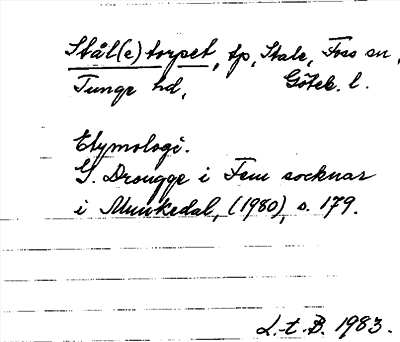 Stål(e)torpet, tp, Stale, Foss sn,
Tunge hd, Göteb. l.
Etymologi.
G. Drougge i Fem socknar
i Munkedal, (1980), s. 179.
L.t.B. 1983.